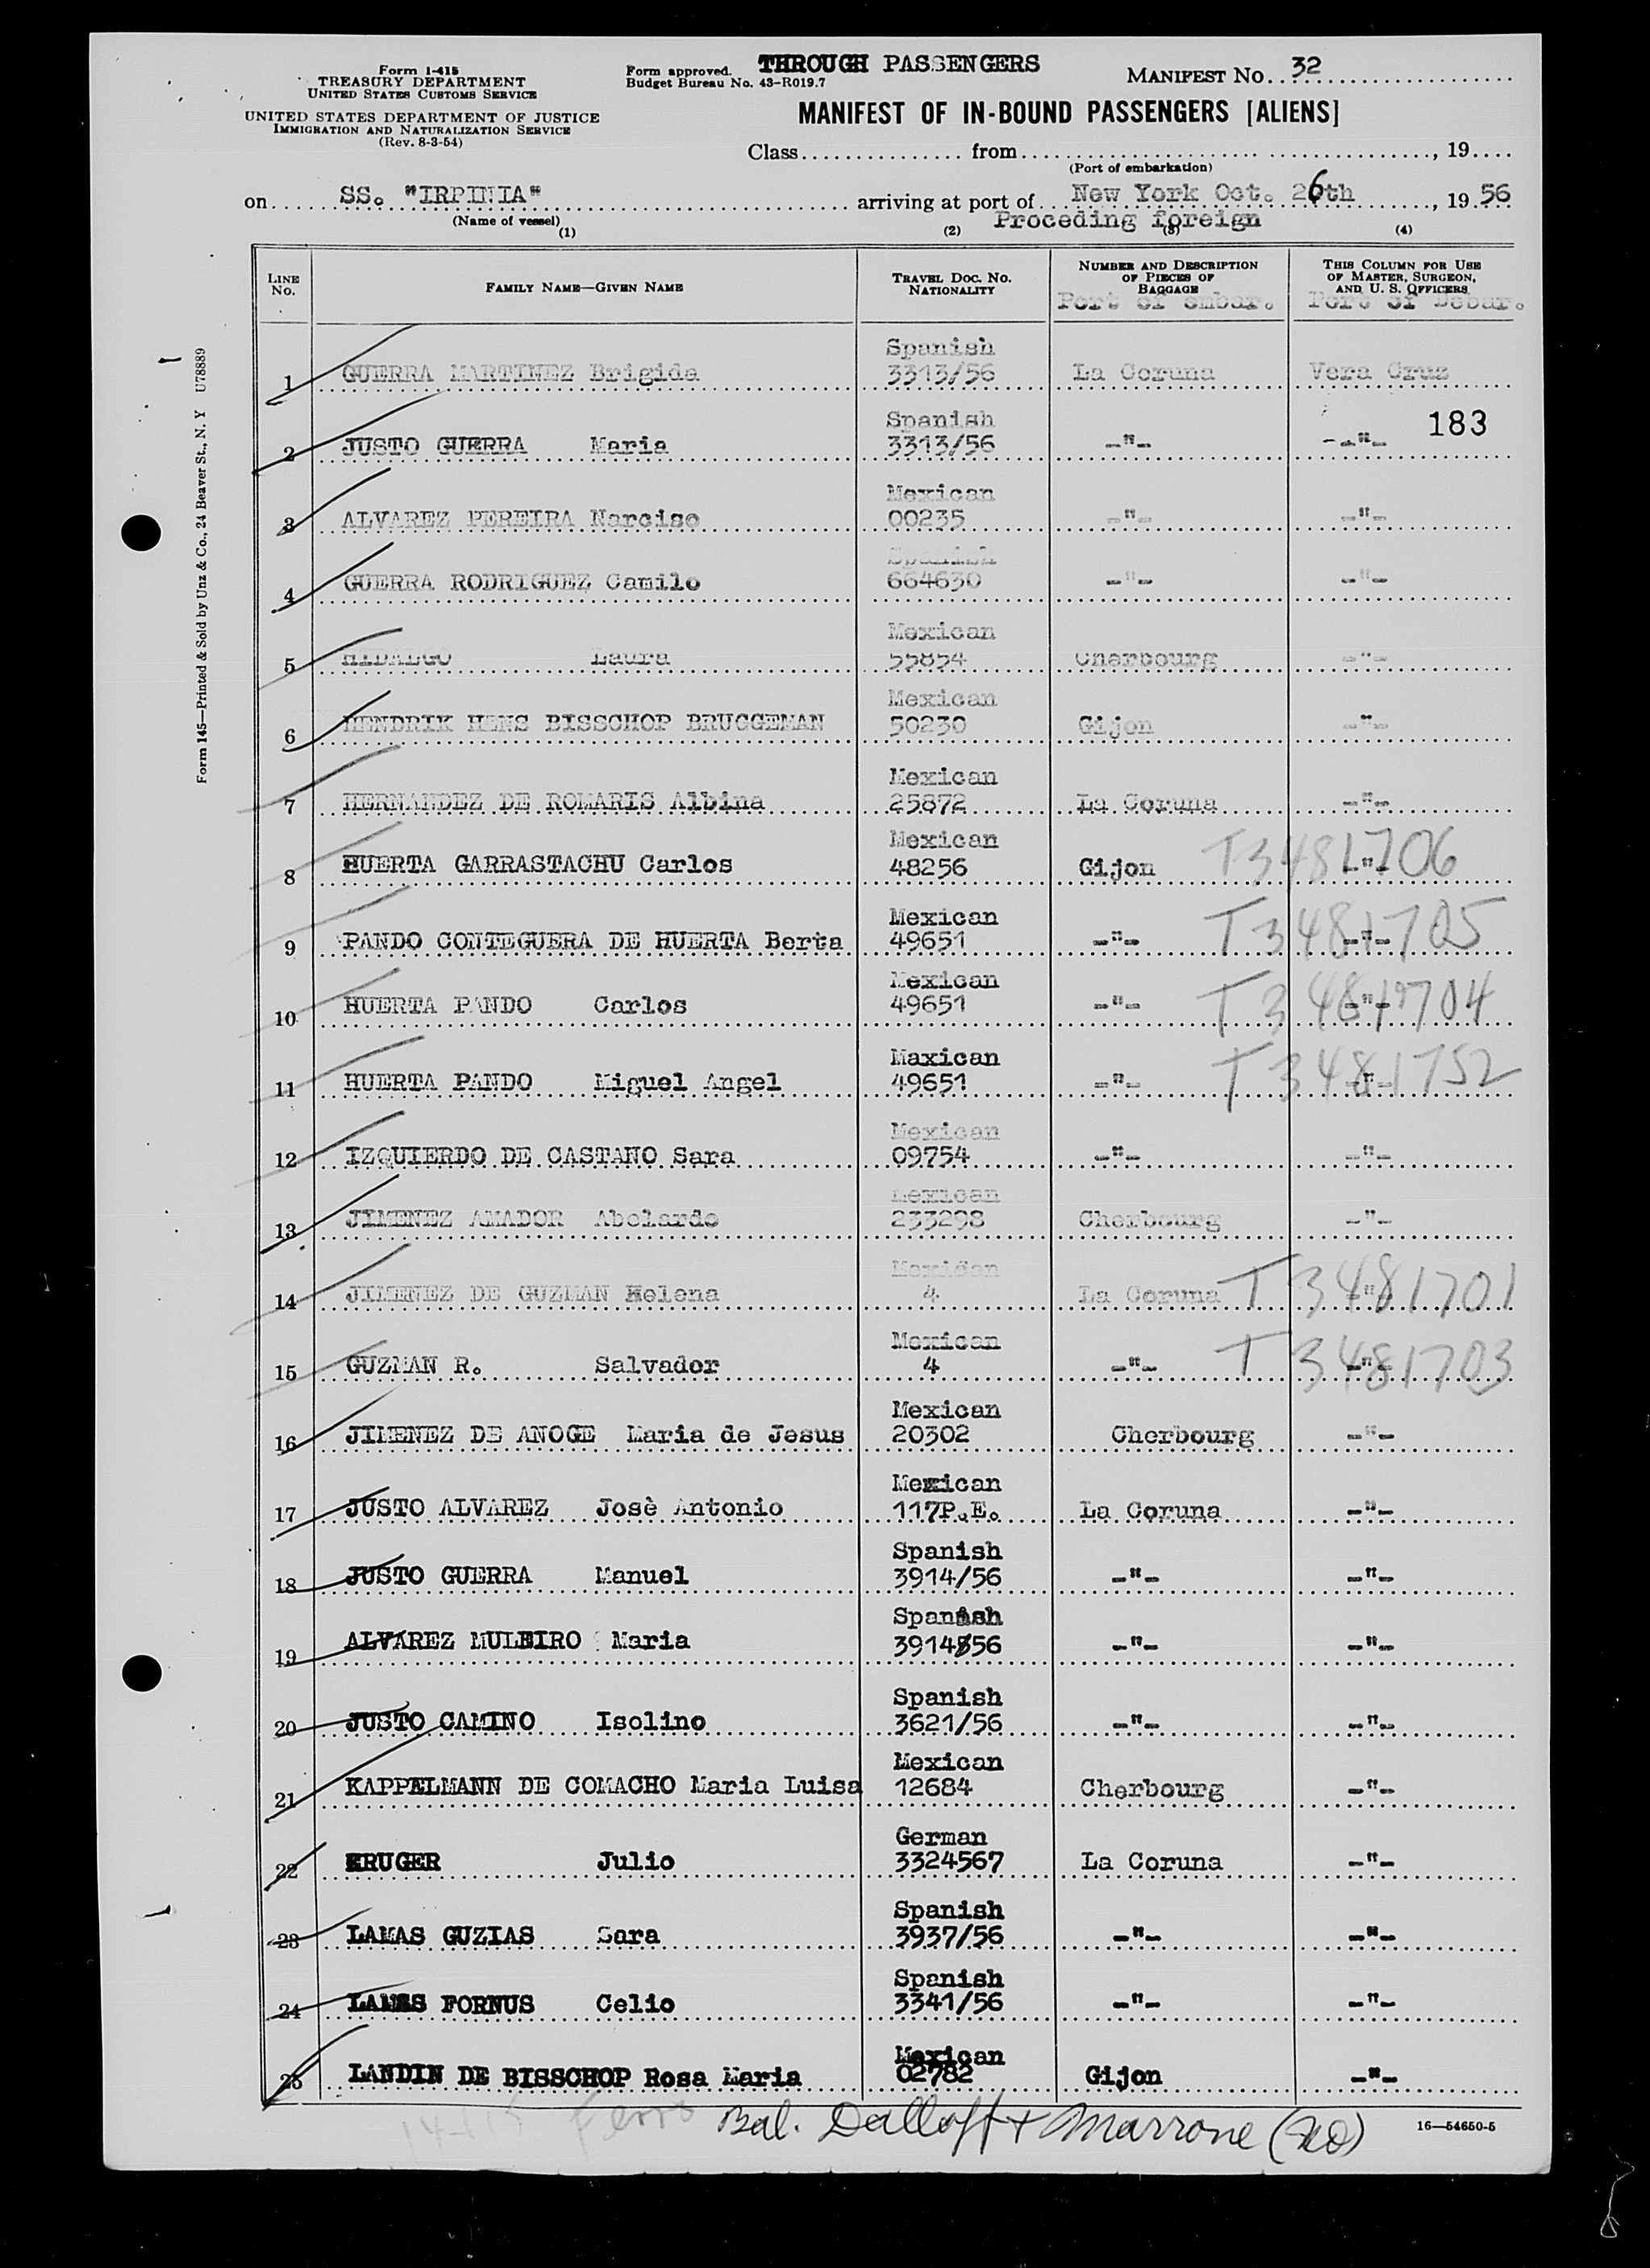 Form I-415
TREASURY DEPARTMENT
UNITED STATES CUSTOMS SERVICE
UNITED STATES DEPARTMENT OF JUSTICE
IMMIGRATION AND NATURALIZATION SERVICE
(Rev. 8-3-54)
Form approved.
Budget Bureau No. 43-R019.7
THROUGH PASSENGERS
MANIFEST No. 32
MANIFEST OF IN-BOUND PASSENGERS [ALIENS]
Class from , 19
(Port of embarkation)
on SS. "IRPINIA" arriving at port of New York Oct. 26th, 19 56
(Name of vessel) Proceding foreign
(1) (2) (3) (4)
LINE No. FAMILY NAME—GIVEN NAME TRAVEL DOC. NO. NATIONALITY NUMBER AND DESCRIPTION OF PIECES OF BAGGAGE THIS COLUMN FOR USE OF MASTER, SURGEON, AND U. S. OFFICERS
Port of embar. Port of Debar.
Spanish
1 GUERRA MARTINEZ Brigida 3313/56 La Coruna Vera Cruz
Spanish 183
2 JUSTO GUERRA Maria 3313/56 -"- -"-
Mexican
3 ALVAREZ PEREIRA Narciso 00235 -"- -"-
Spanish
4 GUERRA RODRIGUEZ Camilo 664630 -"- -"-
Mexican
5 HIDALGO Laura 55854 Cherbourg -"-
Mexican
6 HENDRIK HENS BISSCHOP BRUGGEMAN 50230 Gijon -"-
Mexican
7 HERNANDEZ DE ROMARIS Albina 25872 La Coruna -"-
Mexican
8 HUERTA GARRASTACHU Carlos 48256 Gijon -"- T3481706
Mexican
9 PANDO CONTEGUERA DE HUERTA Berta 49651 -"- -"- T3481705
Mexican
10 HUERTA PANDO Carlos 49651 -"- -"- T3481704
Maxican
11 HUERTA PANDO Miguel Angel 49651 -"- -"- T3481752
Mexican
12 IZQUIERDO DE CASTANO Sara 09754 -"- -"-
Mexican
13 JIMENEZ AMADOR Abelardo 233298 Cherbourg -"-
Mexican
14 JIMENEZ DE GUZMAN Helena 4 La Coruna -"- T3481701
Mexican
15 GUZMAN R. Salvador 4 -"- -"- T3481703
Mexican
16 JIMENEZ DE ANOGE Maria de Jesus 20302 Cherbourg -"-
Mexican
17 JUSTO ALVAREZ Josè Antonio 117P.E. La Coruna -"-
Spanish
18 JUSTO GUERRA Manuel 3914/56 -"- -"-
Spanish
19 ALVAREZ MULEIRO Maria 3914/56 -"- -"-
Spanish
20 JUSTO CAMINO Isolino 3621/56 -"- -"-
Mexican
21 KAPPELMANN DE COMACHO Maria Luisa 12684 Cherbourg -"-
German
22 KRUGER Julio 3324567 La Coruna -"-
Spanish
23 LAMAS GUZIAS Sara 3937/56 -"- -"-
Spanish
24 LAMAS FORNUS Celio 3341/56 -"- -"-
Mexican
25 LANDIN DE BISSCHOP Rosa Maria 02782 Gijon -"-
Bal. Dalloff + Marrone (NO)
16—54650-5
Form 145—Printed & Sold by Unz & Co., 24 Beaver St., N. Y U78889